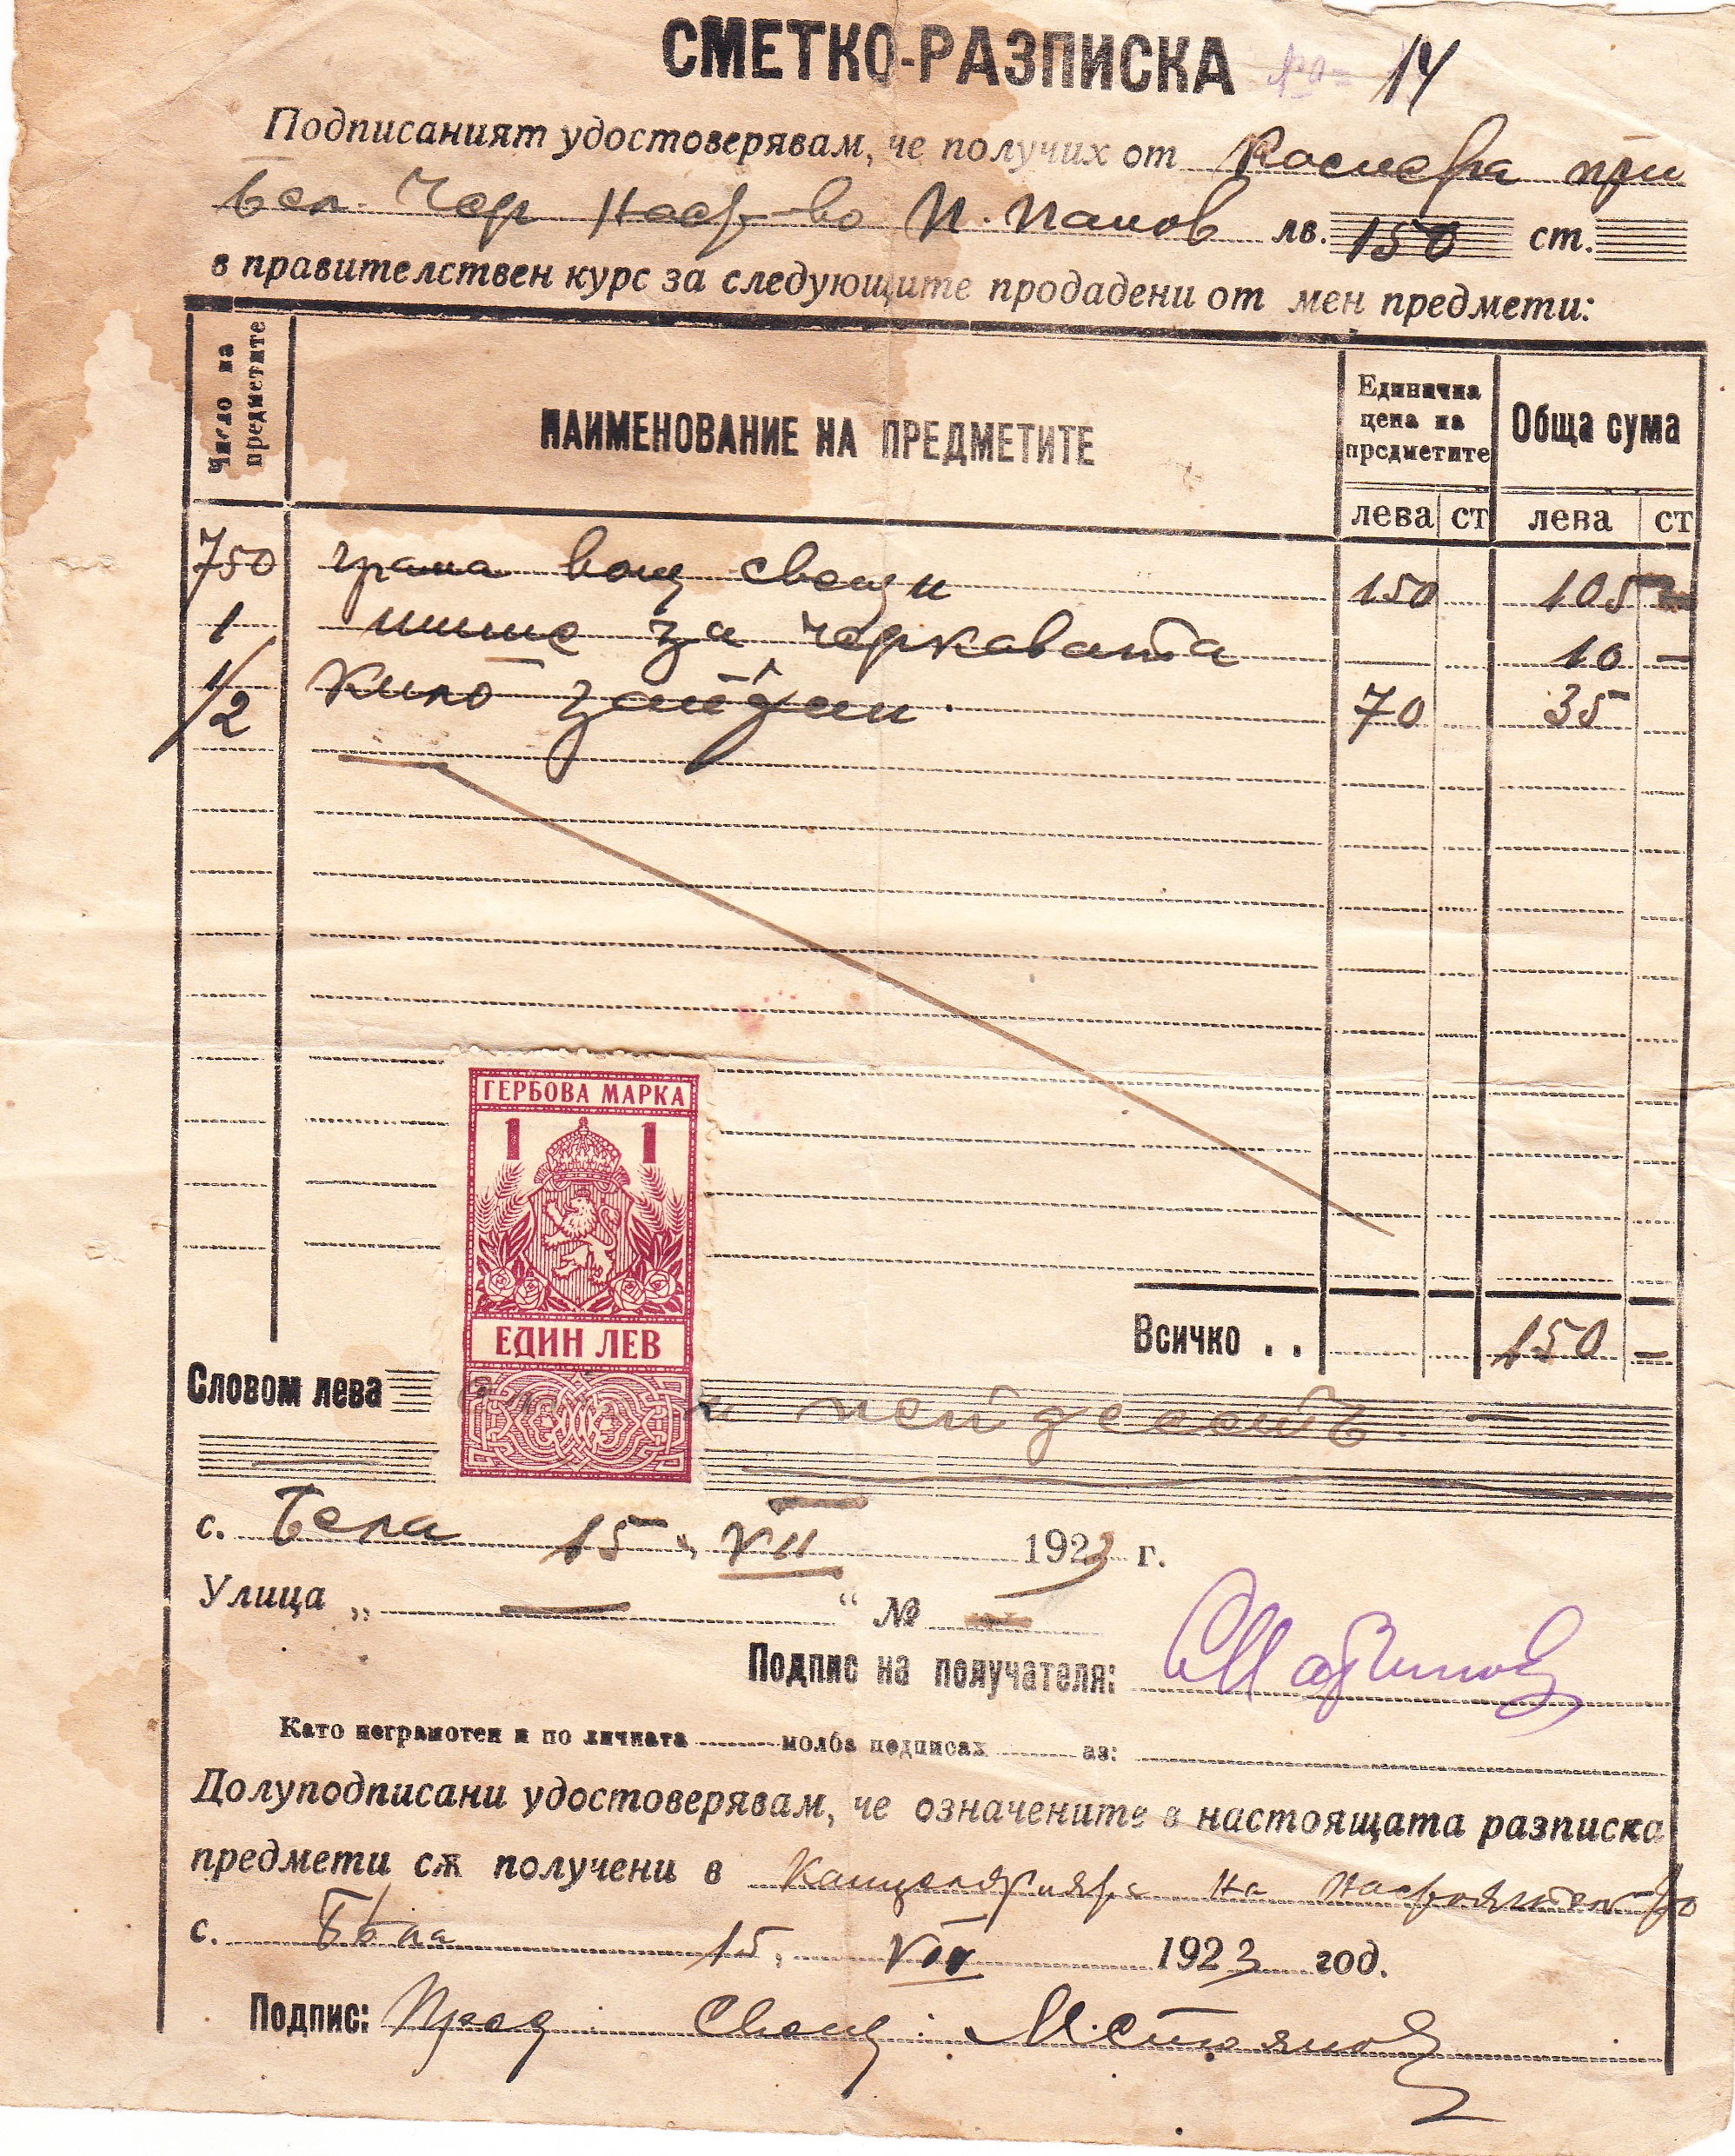 СМЕТКО-РАЗПИСКА № 14
Подписаният удостоверявам, че получих от Касиера при
Бел. Чер. Наст-во П. Панов лв. 150 ст.
в правителствен курс за следующите продадени от мен предмети:
Число на предметите
НАИМЕНОВАНИЕ НА ПРЕДМЕТИТЕ
Единична цена на предметите
Обща сума
лева ст лева ст
750 грама вощ свещи 150 105 -
1 шише за черкавата 10 -
1/2 кило 70 35
ГЕРБОВА МАРКА
1 1
ЕДИН ЛЕВ
Всичко . . 150 -
Словом лева и пейдесеть
с. Бела 15, VII 1923 г.
Улица „ — “ №
Подпис на получателя:
Като неграмотен и по личната молба подписах аз:
Долуподписани удостоверявам, че означените в настоящата разписка
предмети сѫ получени в Канцелярията на
с. Бѣла 15, VII 1923 год.
Подпис: Пред: Свещ: М. Стоянов